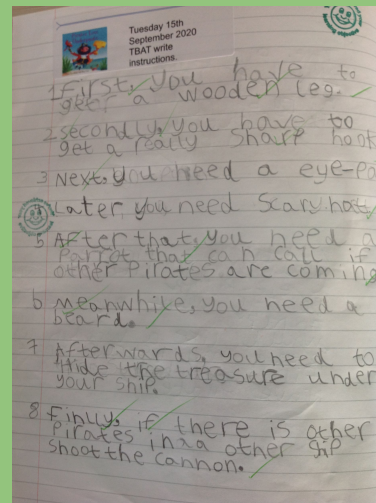 Tuesday 15th
September 2020
TBAT write
instructions.
1 First, you have to
get a wooden leg.
2 secondly, you have to
get a really sharp hook
3 Next, you need a eye-pa
Later, you need scary hat,
5 After that, you need a
Parrot that can call if
other Pirates are coming
6 Meanwhile, you need a
beard.
7 Afterwards, you need to
Hide the treasure under
your ship.
8 Finlly, if there is other
Pirates in a other ship
shoot the cannon.